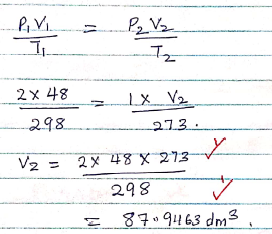 P₁V₁ / T₁ = P₂V₂ / T₂
2 × 48 / 298 = 1 × V₂ / 273.
V₂ = 2 × 48 × 273 / 298
= 87.9463 dm³.